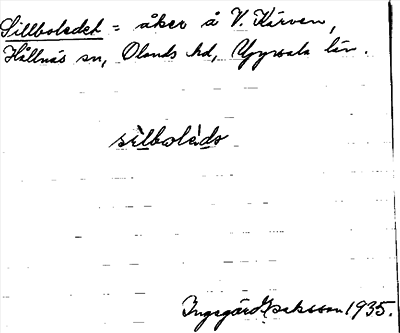 Sillboladet = åker å V. Kärven,
Hållnäs sn, Olands hd, Uppsala län.
silbolàdə
Ingegärd Isaksson 1935.